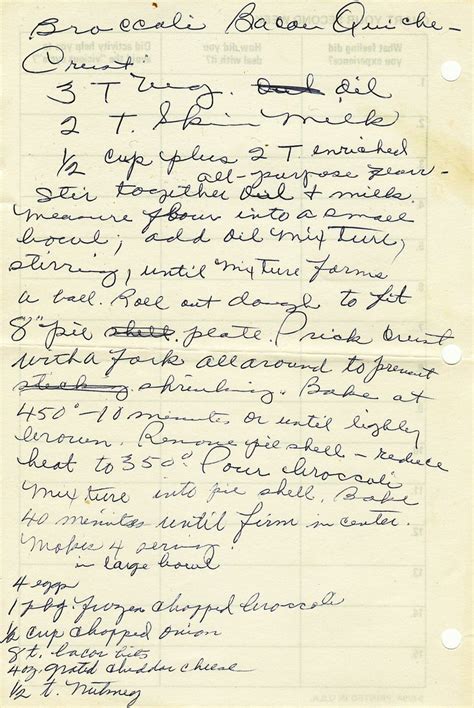 Broccoli Bacon Quiche -
Crust:
3 T veg. oil
2 T. Skim Milk
1/2 cup plus 2 T. enriched
all-purpose flour -
Stir together oil & milk.
Measure flour into a small
bowl; add oil mixture,
stirring, until mixture forms
a ball. Roll out dough to fit
8" pie shell. plate. Prick crust
with a fork all around to prevent
sticking shrinking. Bake at
450° - 10 minutes or until lightly
brown. Remove pie shell - reduce
heat to 350°. Pour broccoli
mixture into pie shell. Bake
40 minutes until firm in center.
Makes 4 serving.
in large bowl
4 eggs
1 pkg. frozen chopped broccoli
1/2 cup chopped onion
8 t. bacon bits
4 oz. grated cheddar cheese
1/2 t. Nutmeg